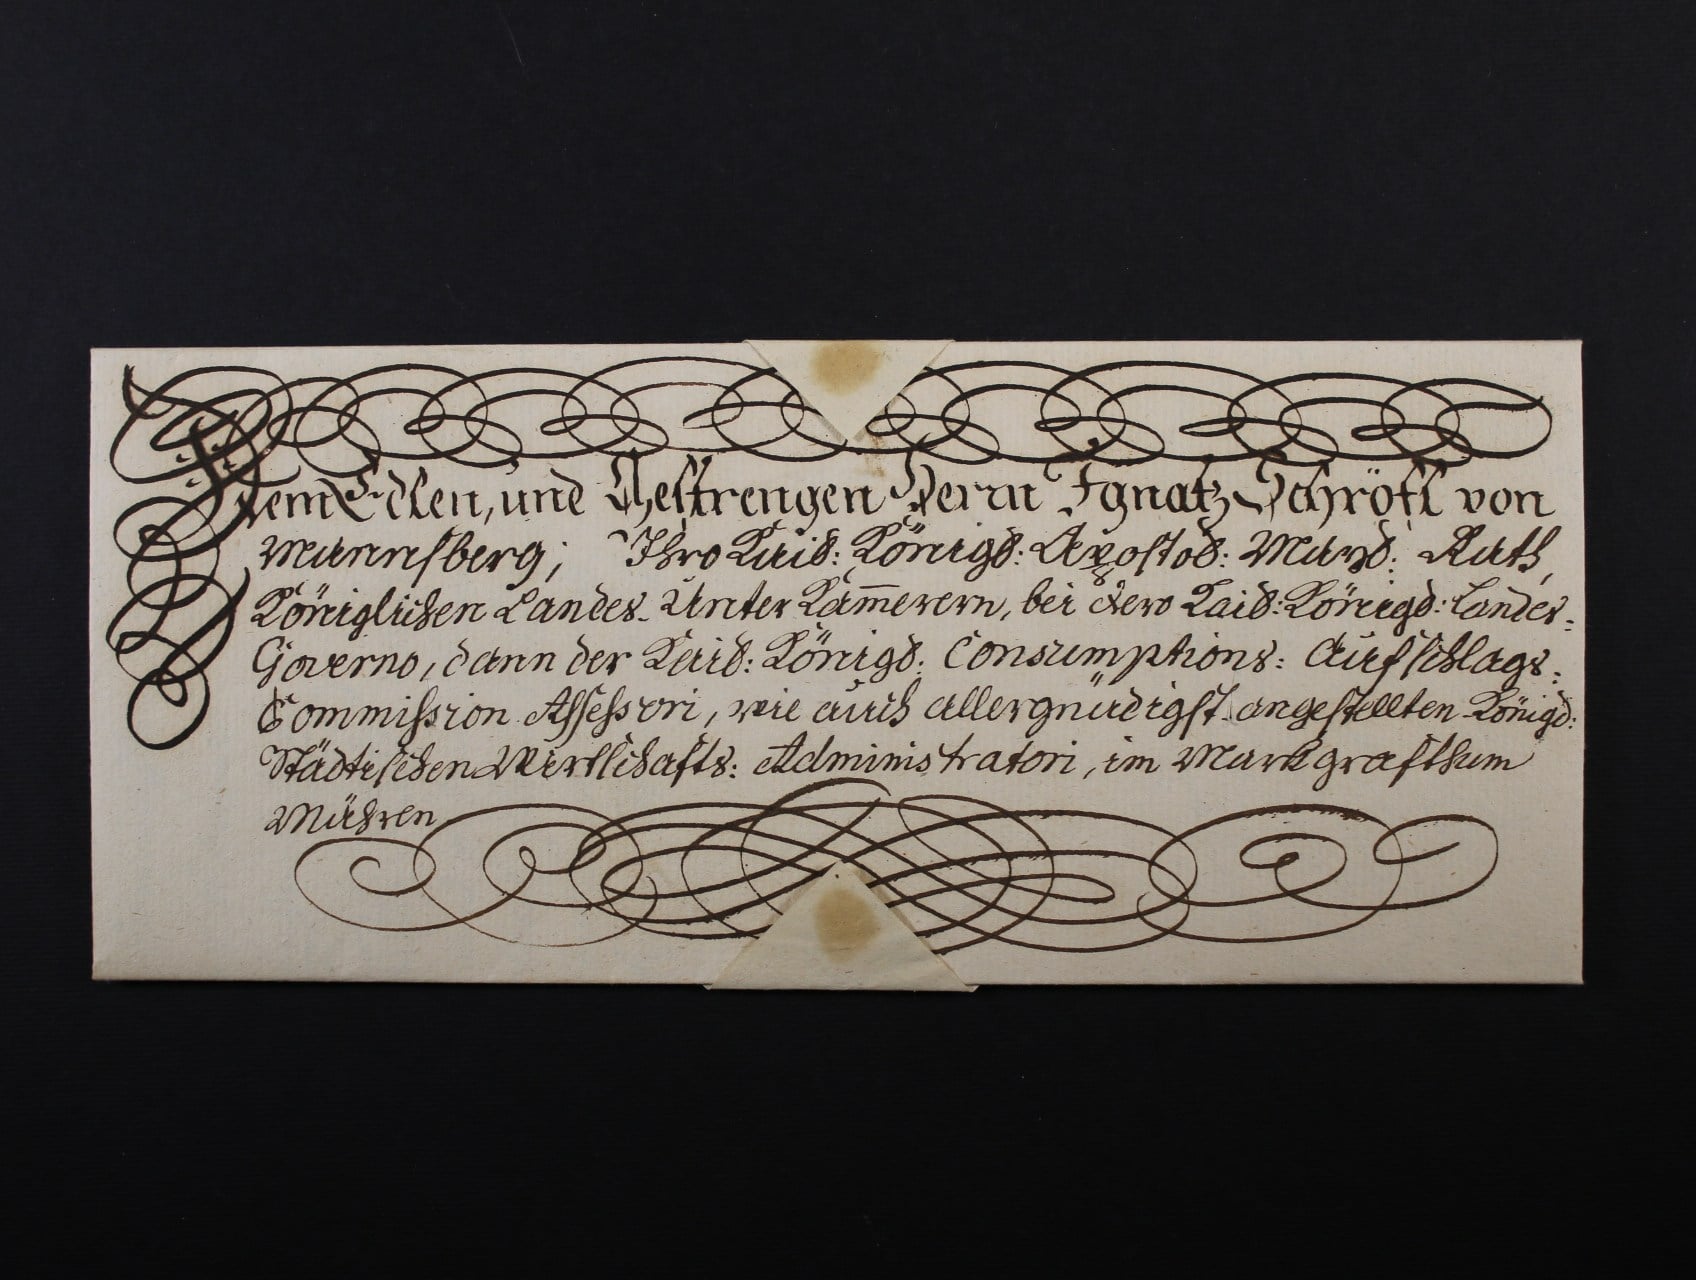 Dem Edlen, und Gestrengen Herrn Ignatz Schröfl von
Mannsberg; Ihro Kais: Königs: Apostol: Mays: Rath,
Königlichen Landes-Unter Kam̅erern, bei Dero Kais: Königs: Landes-
Governo, dann der Kais: Königs: Consumptions: Aufschlags:
Commission Assessori, wie auch allergnädigst angestellten Königs:
Städtischen Wirtschafts: Administratori, im Markgrafthum
Mähren